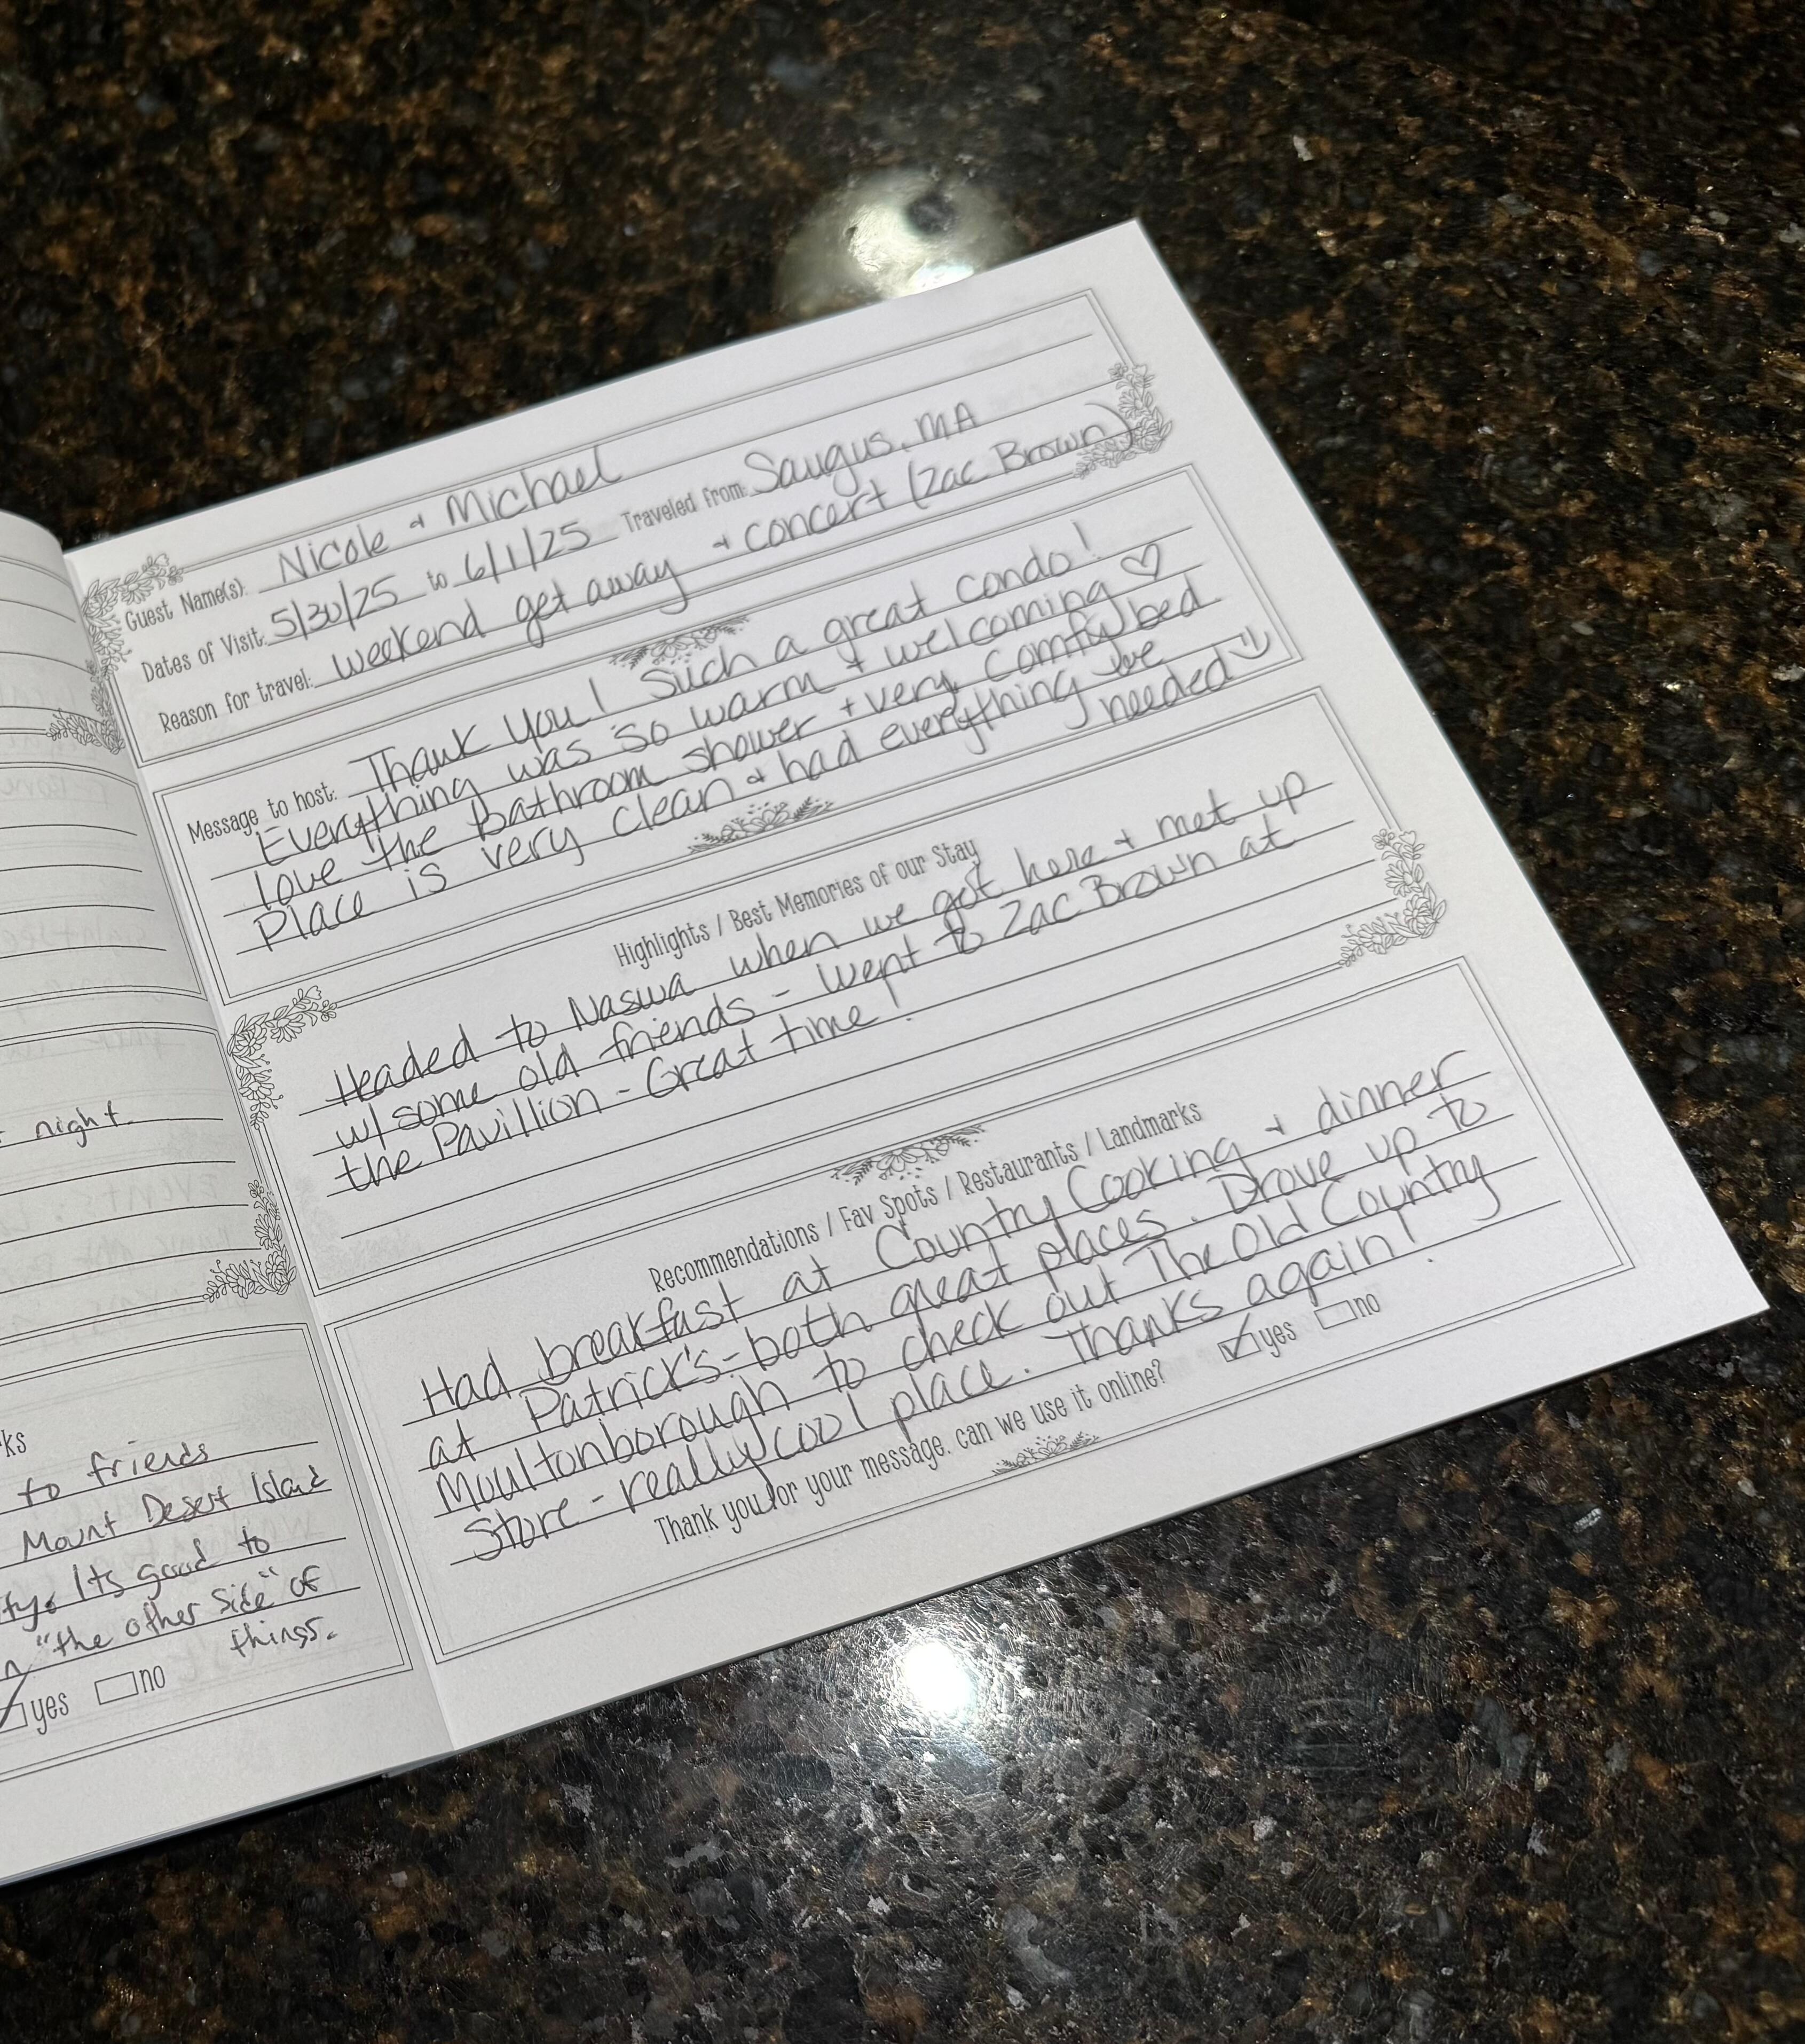 night.
ks
to friends
Mount Desert Island
Its good to
"the other side" of
things.
yes no
Guest Name(s): Nicole + Michael
Dates of Visit: 5/30/25 to 6/1/25 Traveled from: Saugus, MA
Reason for travel: weekend get away + concert (Zac Brown)
Message to host: Thank you! Such a great condo!
Everything was so warm + welcoming ♡
love the bathroom shower + very comfy bed
Place is very clean + had everything we
needed :)
Highlights / Best Memories of our Stay
Headed to Naswa when we got here + met up
w/ some old friends - went to Zac Brown at
the Pavillion - Great time!
Recommendations / Fav Spots / Restaurants / Landmarks
Had breakfast at Country Cooking + dinner
at Patrick's - both great places. Drove up to
Moultonborough to check out The Old Country
Store - really cool place. Thanks again!
Thank you for your message, can we use it online? yes no